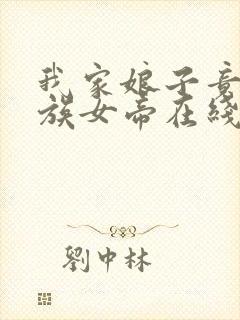 我家娘子竟
族女帝在綫
劉中林